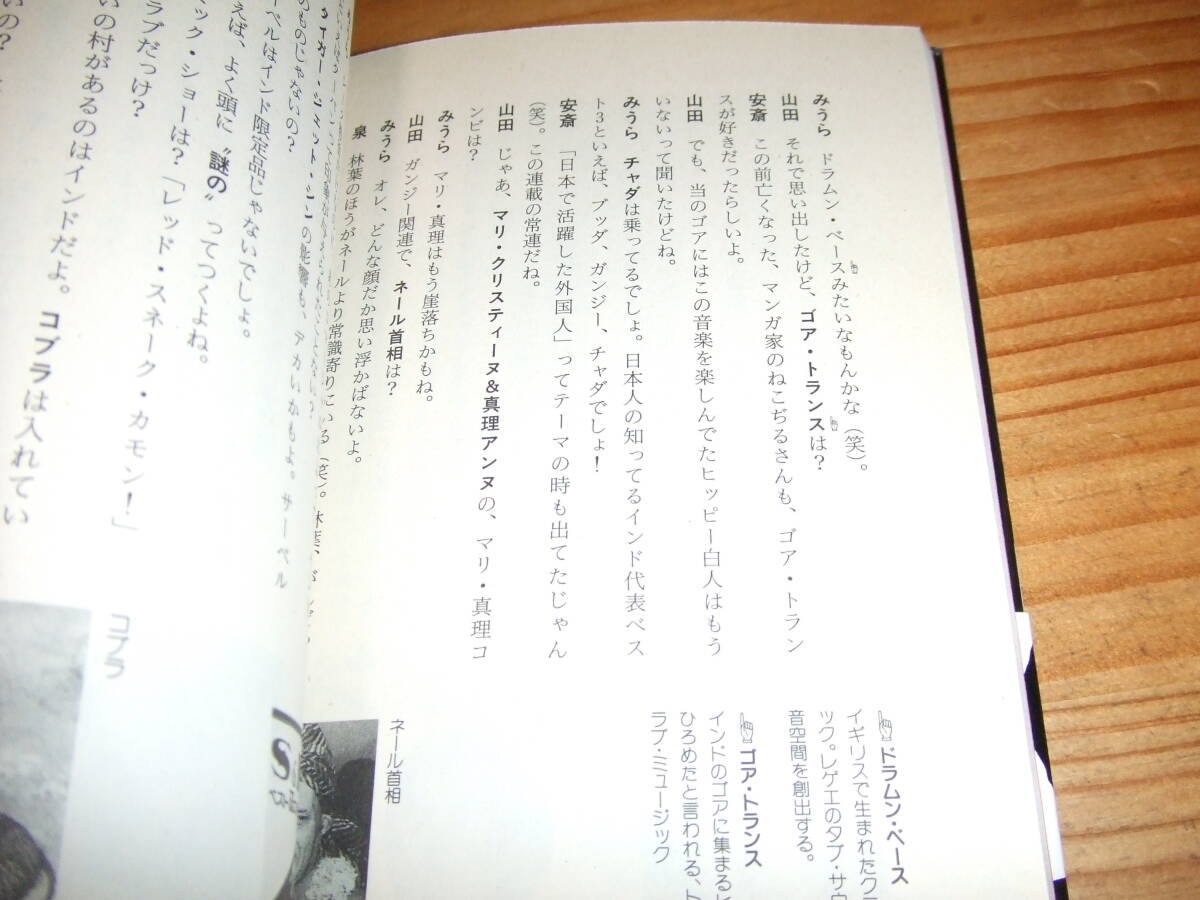 みうら　ドラムン・ベースみたいなもんかな（笑）。
山田　それで思い出したけど、ゴア・トランスは？
安斎　この前亡くなった、マンガ家のねこぢるさんも、ゴア・トラン
スが好きだったらしいよ。
山田　でも、当のゴアにはこの音楽を楽しんでたヒッピー白人はもう
いないって聞いたけどね。
みうら　チャダは乗ってるでしょ。日本人の知ってるインド代表ベス
ト3といえば、ブッダ、ガンジー、チャダでしょ！
安斎　「日本で活躍した外国人」ってテーマの時も出てたじゃん
（笑）。この連載の常連だね。
山田　じゃあ、マリ・クリスティーヌ＆真理アンヌの、マリ・真理コ
ンビは？
みうら　マリ・真理はもう崖落ちかもね。
山田　ガンジー関連で、ネール首相は？
みうら　オレ、どんな顔だか思い浮かばないよ。
泉　林葉のほうがネールより常識寄りにいる（笑）。林葉、が
タイガー・ジェット・シンの影響も、デカいかもよ。サーベル
のものじゃないの？
ーベルはインド限定品じゃないでしょ。
えば、よく頭に〝謎の〟ってつくよね。
ック・ショーは？「レッド・スネーク・カモン！」
ラブだっけ？
いの村があるのはインドだよ。コブラは入れてい
いの？
ドラムン・ベース
イギリスで生まれたク
ック。レゲエのダブ・サウ
音空間を創出する。
ゴア・トランス
インドのゴアに集まるヒ
ひろめたと言われる、ト
ラブ・ミュージック
ネール首相
コブラ